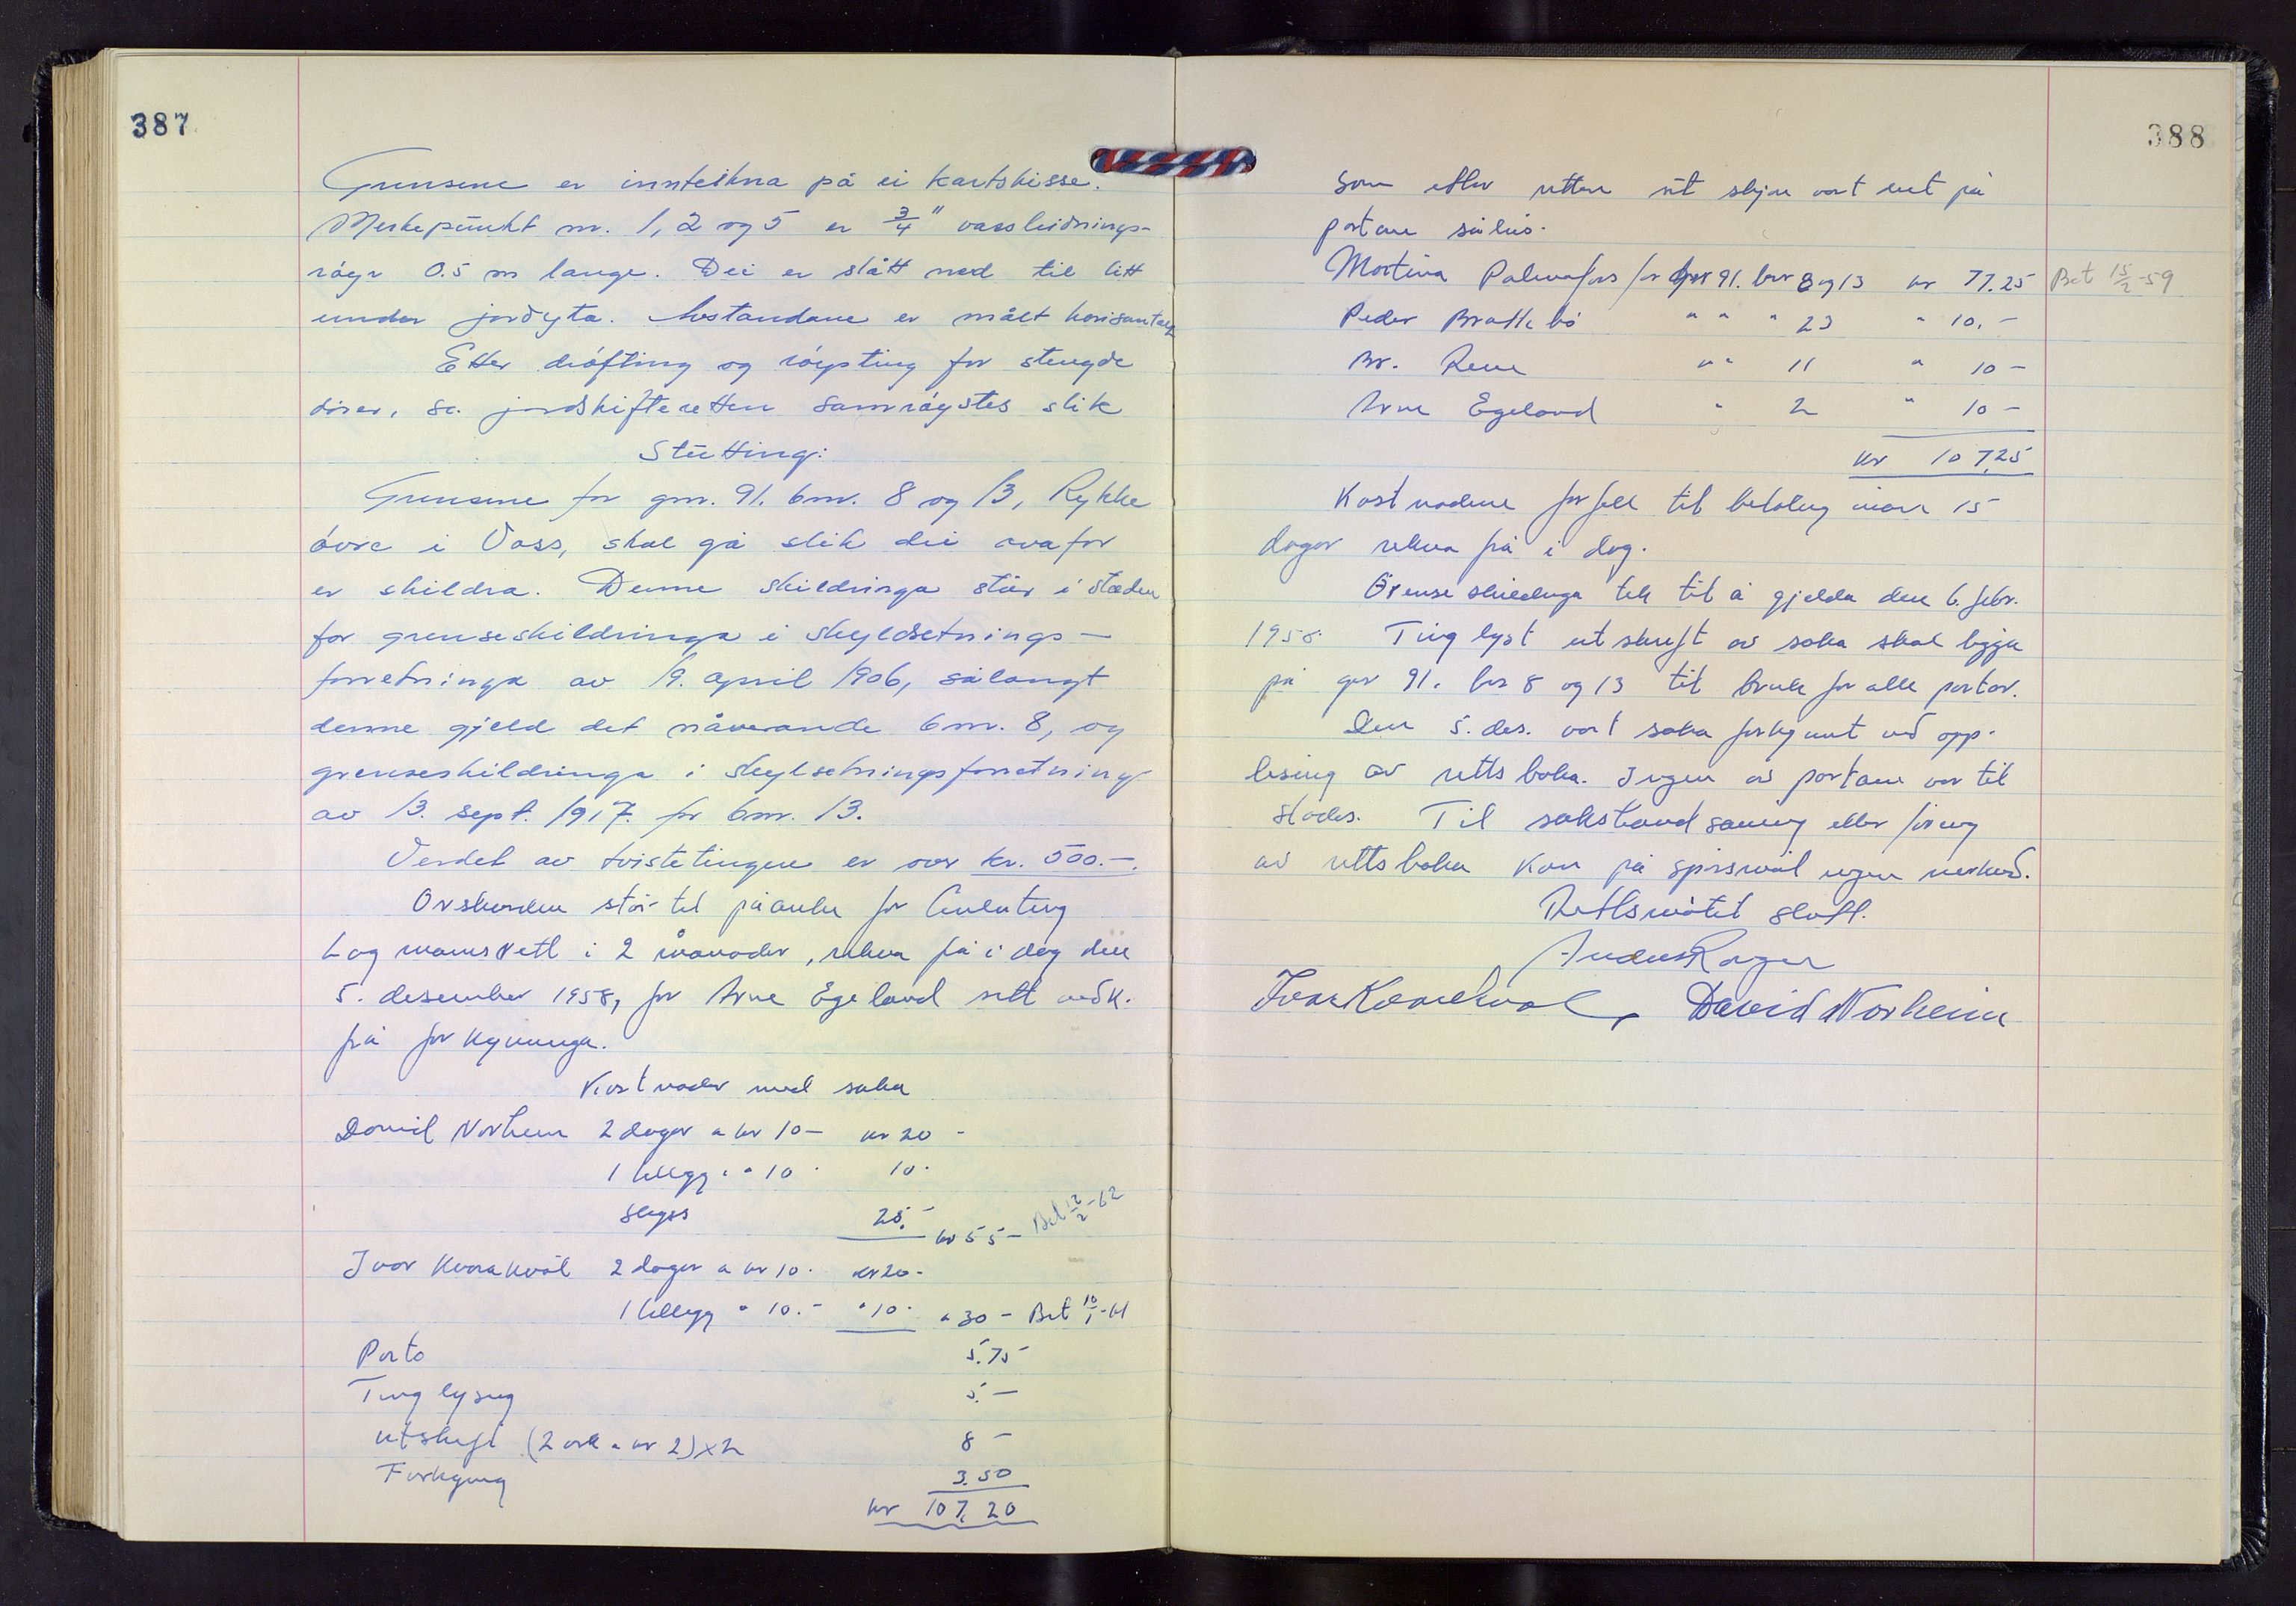 387
Grensene er innteikna på ei kartskisse.
Merkepunkt nr. 1, 2 og 5 er 3/4" vassleidnings-
røyr 0.5 m lange. Dei er slått ned til litt
under jordyta. Avstandane er målt horisontalt
Etter drøfting og røysting for stengde
dører, sa jordskifteretten samrøystes slik
Slutting:
Grensene for gnr. 91. bnr. 8 og 13, Rykke
øvre i Voss, skal gå slik dei ovafor
er skildra. Denne skildringa står i staden
for grenseskildringa i skyldsetnings-
forretninga av 19. april 1906, sålangt
denne gjeld det nåverande bnr. 8, og
grenseskildringa i skylsetningsforretning
av 13. sept. 1917. for bnr. 13.
Verdet av tvistetingen er over kr. 500.-.
Orskurden står til påanke for Gulating
Lagmannsrett i 2 månader, rekna frå i dag den
5. desember 1958, for Arne Egeland sitt vedk.
frå forkynninga.
Kostnader med saka
David Norheim 2 dagar a kr 10- kr 20 -
1 tillegg " " 10 - 10.
Skyss 25.- kr 55- Bet 12/2-62
Ivar Kvarekvål 2 dagar a kr 10. kr 20-
1 tillegg " 10.- " 10. " 30 - Bet 10/1-61
Porto 5.75
Tinglysing 5.-
Utskrift (2 ark a kr 2) x 2 8 -
Forkynning 3.50
kr 107,20
388
som etter retten sit skjøn vart lagt på
partane såleis.
Martina Palmafoss for gnr 91. bnr 8 og 13 kr 77.25 Bet 15/2-59
Peder Brattebø " " " 23 " 10.-
Br. Rene " " 11 " 10 -
Arne Egeland " 2 " 10 -
kr 107,25
Kostnadene forfell til betaling innan 15
dagar rekna frå i dag.
Grenseskildringa tek til å gjelda den 6. febr.
1958. Tinglyst utskrift av saka skal liggja
på gnr 91. bnr 8 og 13 til bruk for alle partar.
Den 5. des. vart saka forkynnt ved opp-
lesing av rettsboka. Ingen av partane var til
stades. Til sakshandsaming eller føring
av rettsboka kom på spørsmål ingen merknad.
Rettsmøtet slutt.
Ivar Kvarekvål, David Norheim